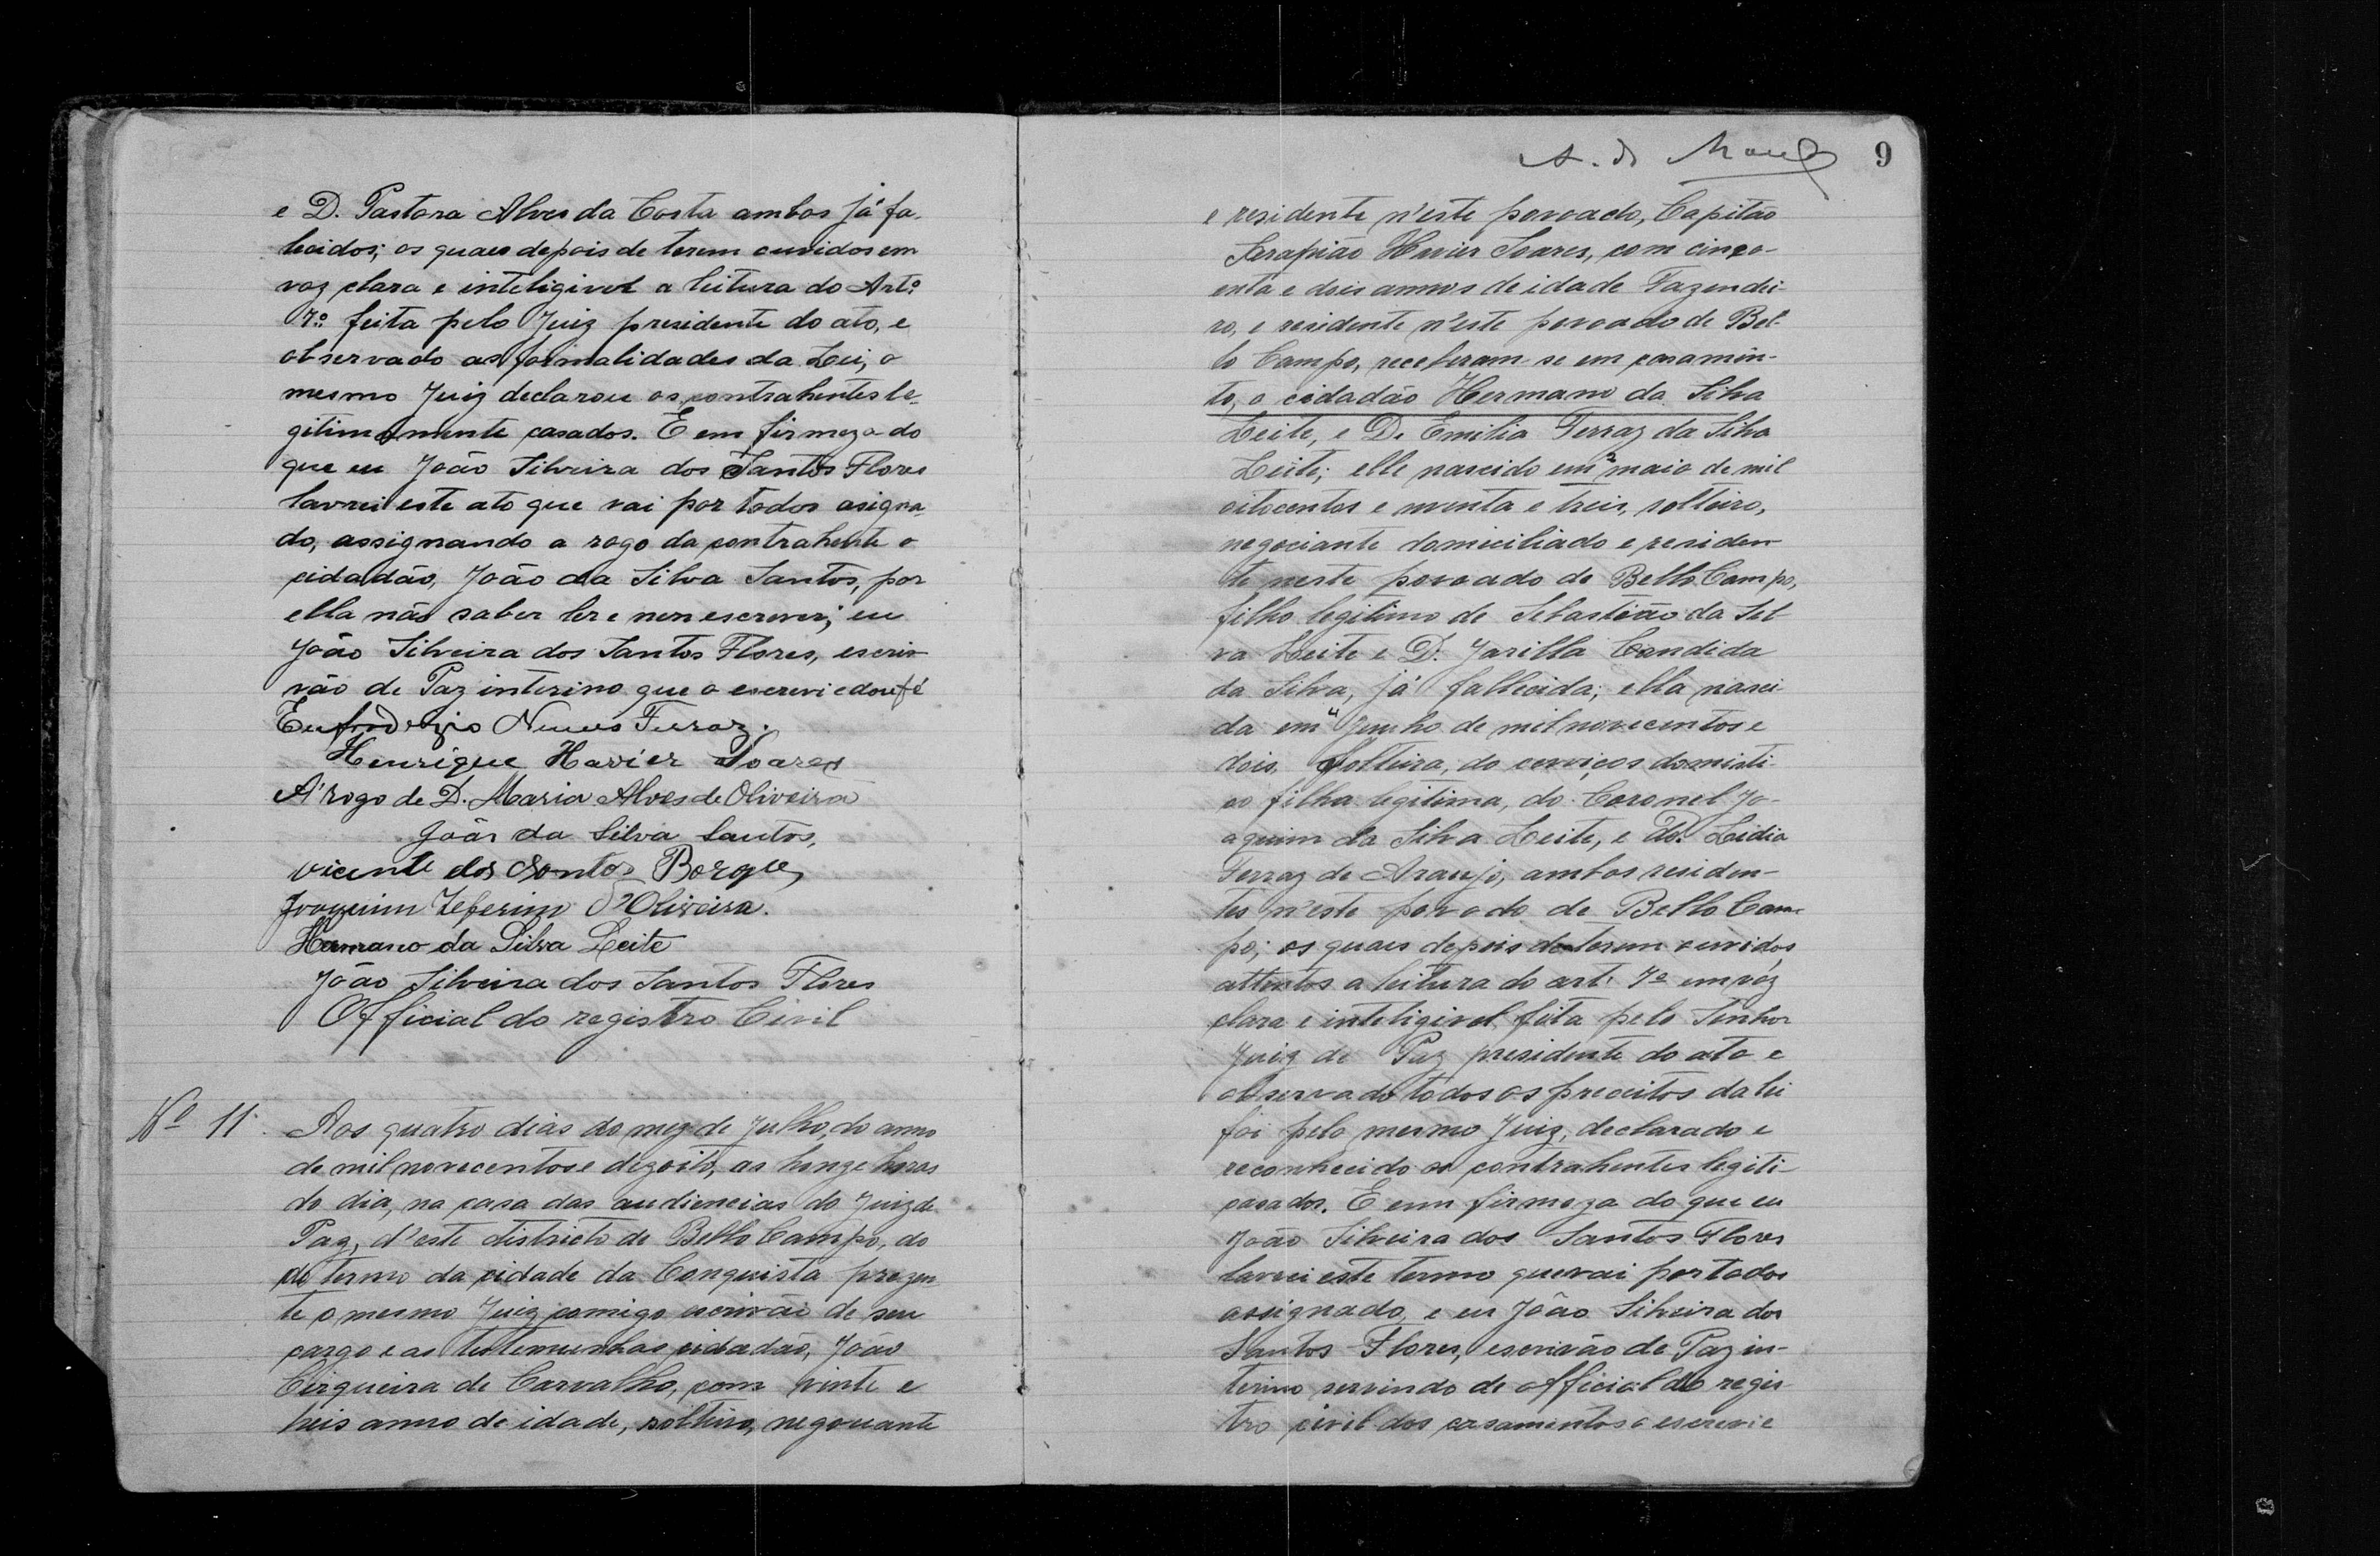 e D. Pastora Alves da Costa ambos já fa-
lecidos; os quaes depois de terem ouvidos em
voz clara e inteligivel a leitura do Artº
7º feita pelo Juiz presidente do ato, e
observado as formalidades da Lei, o
mesmo Juiz declarou os contrahentes le-
gitimamente casados. E em firmeza do
que eu João Silveira dos Santos Flores
lavrei este ato que vai por todos asigna-
do, assignando a rogo da contrahente o
cidadão, João da Silva Santos, por
ella não saber ler e nen escrever; eu
João Silveira dos Santos Flores, escri-
vão de Paz interino que o escrevi e dou fé
Nunes Ferraz.
Henrique Havier Soares
A'rogo de D. Maria Alves de Oliveira
João da Silva Santos,
Vicente dos Santos Borges
Joaquim Zeferino d'Oliveira.
Hermano da Silva Leite
João Silveira dos Santos Flores
Official do registro Civil
Nº 11.
Aos quatro dias do mez de Julho, do anno
de mil novecentos e dezoito, as honze horas
do dia, na casa das audiencias do Juiz de
Paz, d'este districto de Bello Campo, do
do termo da cidade da Conquista prezen-
te o mesmo Juiz comigo escrivão de seu
cargo e as testemunhas cidadão, João
Cirqueira de Carvalho, com vinte e
treis anno de idade, solteiro, negociante
9
e residente n'este povoado, Capitão
Serapião Havier Soares, com cinco-
enta e dois annos de idade Fazendei-
ro, e residente n'este povoado de Bel-
lo Campo, receberam-se em casamen-
to, o cidadão Hermano da Silva
Leite, e D. Emilia Ferraz da Silva
Leite; elle nascido em maio de mil
oitocentos e noventa e treis, solteiro,
negociante domiciliado e residen-
te neste povoado de Bello Campo,
filho legitimo de Sebastião da Sil-
va Leite e D. Jarilla Candida
da Silva, já fallecida; ella nasci-
da em Junho de mil novecentos e
dois, Solteira, do cerviços domisti-
co filha legitima, do Coronel Jo-
aquim da Silva Leite, e D. Leidia
Ferraz de Araujo, ambos residen-
tes n'este povoado de Bello Cam-
po; os quaes depois de terem ouvidos,
attentos a leitura do art. 7º em voz
clara e inteligivel, feita pelo Senhor
Juiz de Paz presidente do ato e
observado todos os preceitos da lei
foi pelo mesmo Juiz, declarado e
reconhecido os contrahentes legiti-
casados. E em firmeza do que eu
João Silveira dos Santos Flores
lavrei este termo que vai por todos
assignado, e eu João Silveira dos
Santos Flores, escrivão de Paz in-
terino servindo de official do regis-
tro civil dos casamentos o escrevi e